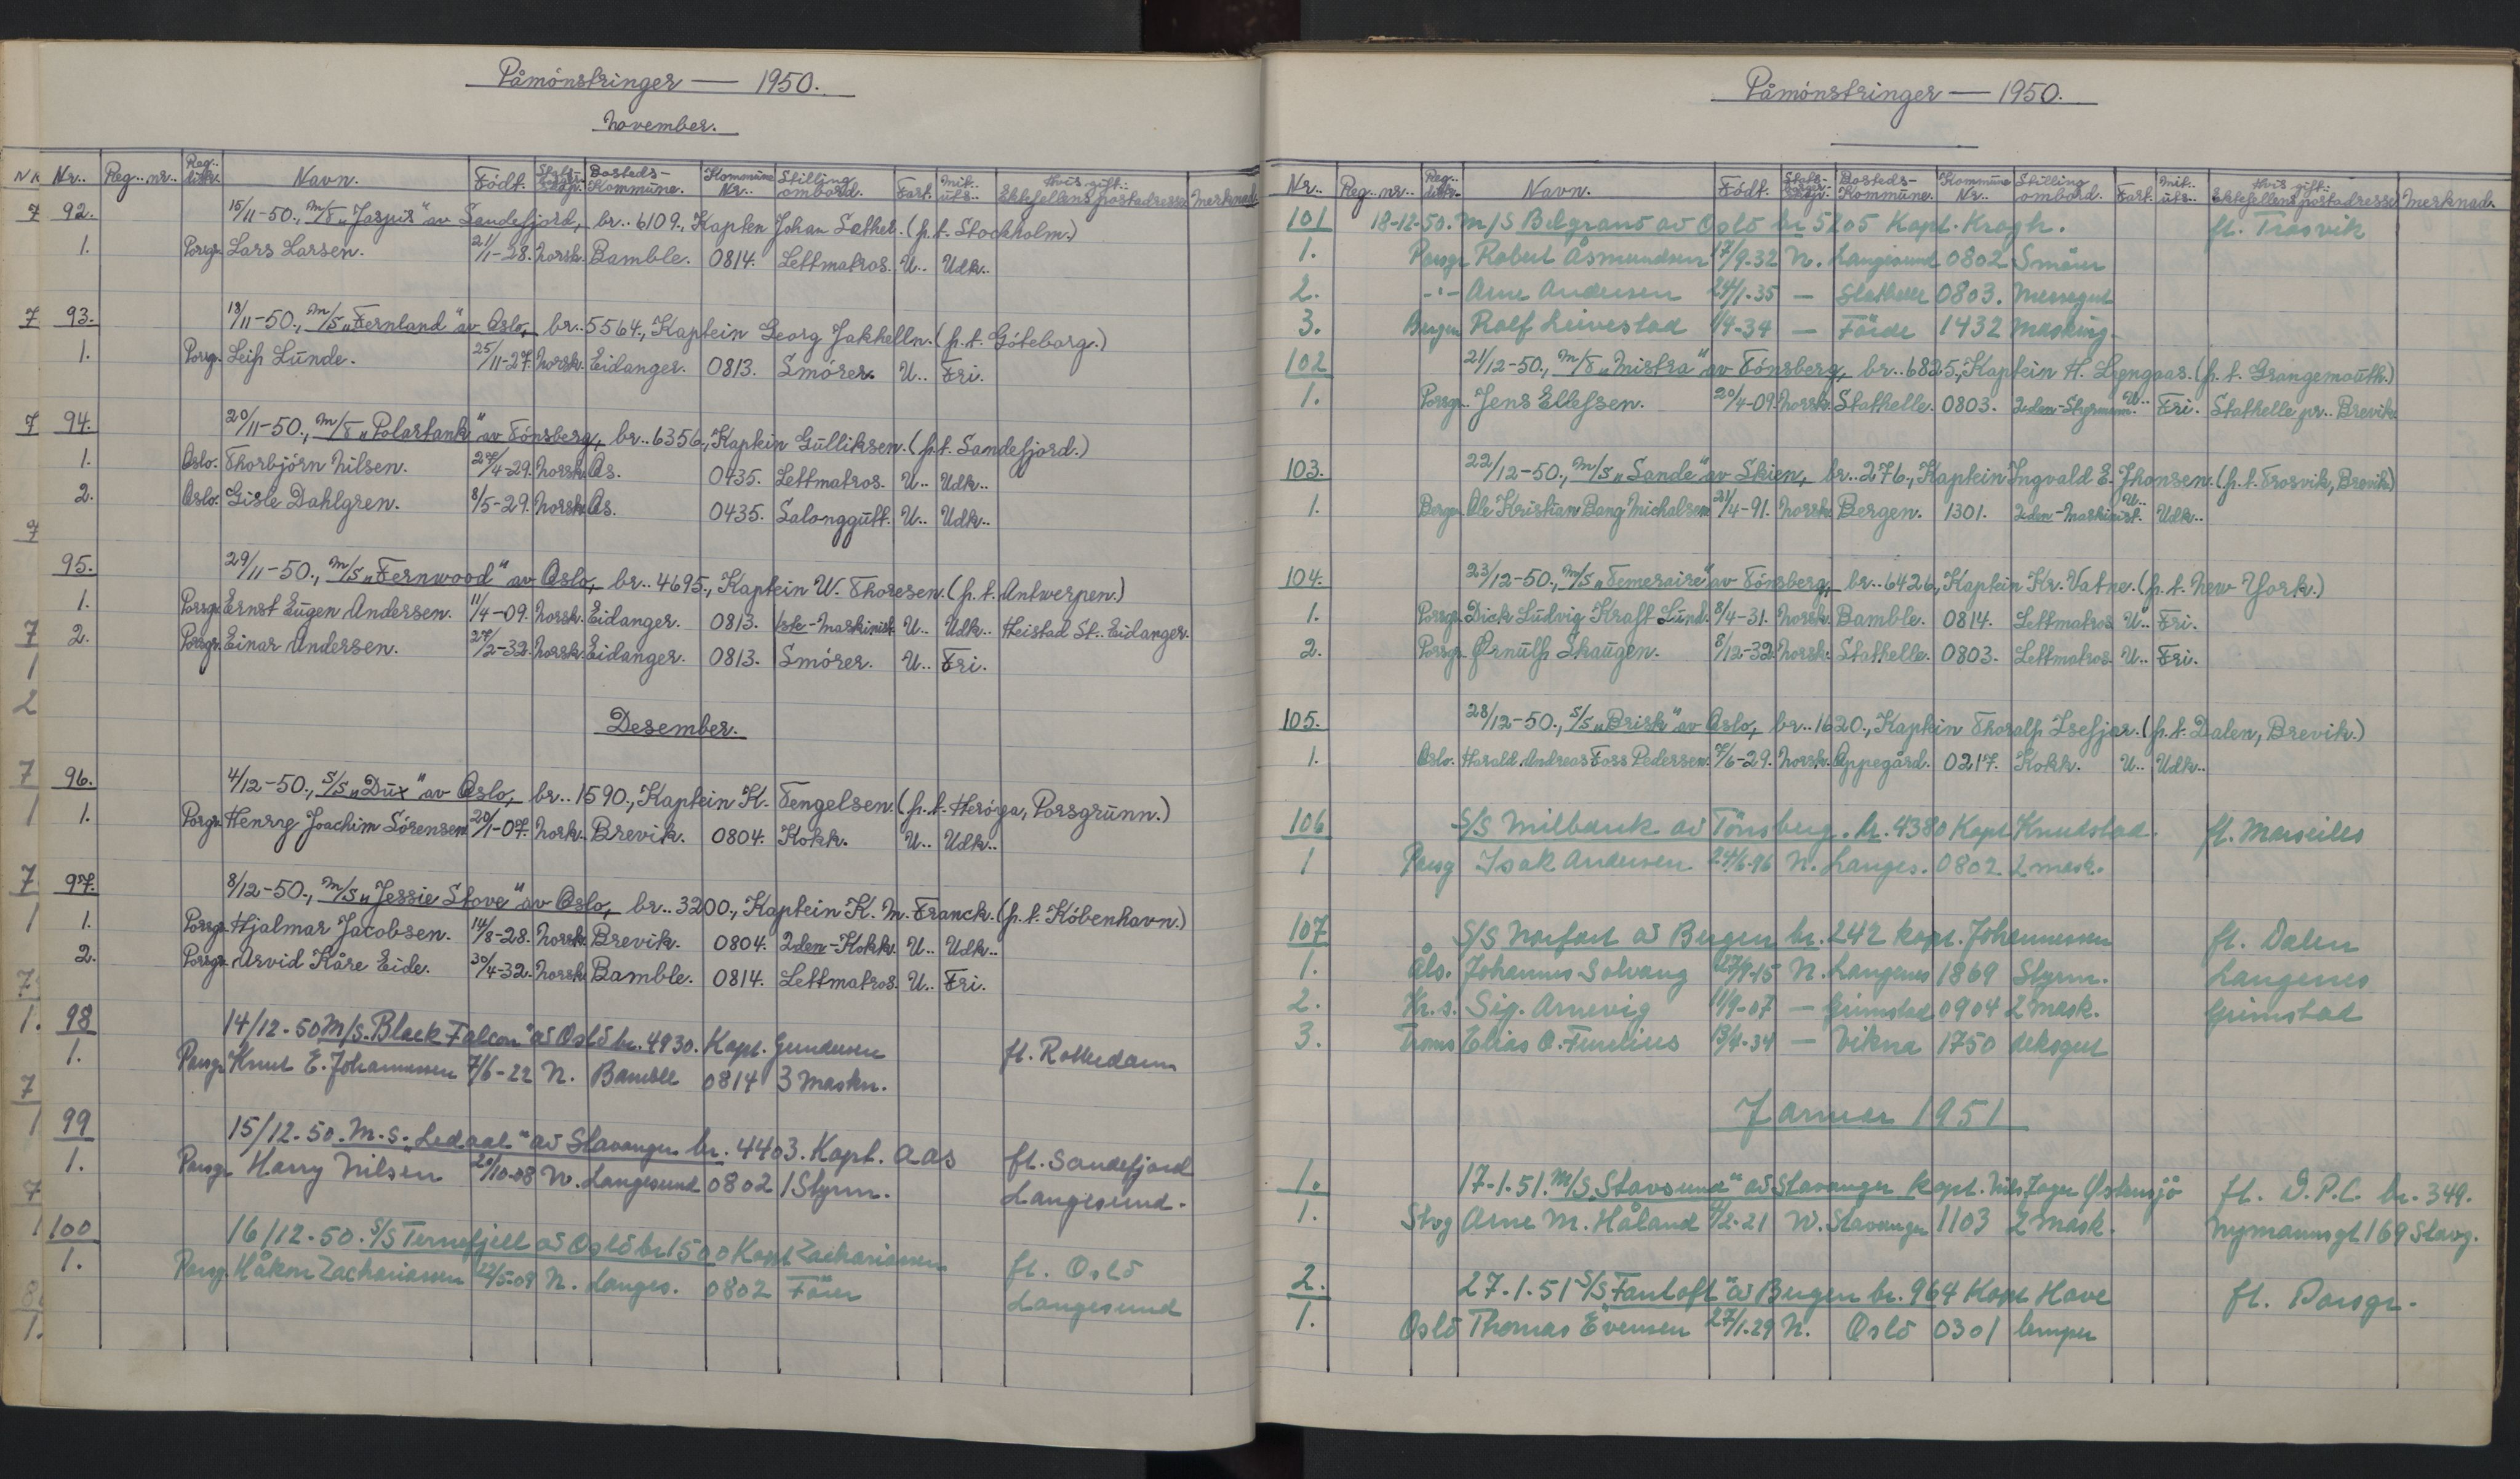 Påmönstringer — 1950.
November.
Nr.. Reg.. nr.. Reg.. distr. Navn. Födt. Stats-borger-skap. Bosteds-Kommune. Kommune Nr.. Stilling ombord. Fart. Mit.. uts.. Hvis gift: Ektefellens postadresse Merknad.
92. 15/11-50., M/T „Jaspis" av Sandefjord, br.. 6109., Kaptein Johan Sæthel. (p.t. Stockholm.)
1. Porsgr. Lars Larsen. 21/1-28. Norsk. Bamble. 0814. Lettmatros. U.. Udk..
93. 18/11-50., M/S „Fernland" av Oslo, br.. 5564., Kaptein Georg Jakhelln. (p.t. Göteborg.)
1. Porsgr. Leif Lunde. 25/11-27. Norsk. Eidanger. 0813. Smörer. U.. Fri.
94. 20/11-50., M/T „Polartank" av Tönsberg, br.. 6356., Kaptein Gulliksen. (p.t. Sandefjord.)
1. Oslo. Thorbjörn Nilsen. 27/4-29. Norsk. Ås. 0435. Lettmatros. U.. Udk..
2. Oslo. Gisle Dahlgren. 8/5-29. Norsk. Ås. 0435. Salonggutt. U.. Udk..
95. 29/11-50., M/S „Fernwood" av Oslo, br.. 4695., Kaptein W. Thoresen. (p.t. Antwerpen.)
1. Porsgr. Ernst Eugen Andersen. 11/4-09. Norsk. Eidanger. 0813. 1ste-Maskinist U.. Udk.. Heistad St.. Eidanger.
2. Porsgr. Einar Andersen. 27/2-32. Norsk. Eidanger. 0813. Smörer. U.. Fri.
Desember.
96. 4/12-50., S/S „Dux" av Oslo, br.. 1590., Kaptein K. Tengelsen. (p.t. Heröya, Porsgrunn.)
1. Porsgr. Henrrg Joachim Sörensen. 20/1-07. Norsk. Brevik. 0804. Kokk. U.. Udk..
97. 8/12-50., M/S „Jessie Stove" av Oslo, br.. 3200., Kaptein K. M. Franck. (p.t. Köbenhavn.)
1. Porsgr. Hjalmar Jacobsen. 14/8-28. Norsk. Brevik. 0804. 2den-Kokk. U.. Udk..
2. Porsgr. Arvid Kåre Eide. 30/4-32. Norsk. Bamble. 0814. Lettmatros. U.. Fri.
98 14/12-50 M/S. Black Falcon" av Oslo br. 4930. Kapt. Gundersen ft. Rotterdam
1. Porsgr Knut E. Johannessen 7/6-22 N. Bamble 0814 3 Maskn.
99 15/12.50. M.S. „Ledaal" av Stavanger br. 4403. Kapt. Aas ft. Sandefjord
1. Porsgr Harry Nilsen 20/10-08 N. Langesund 0802 1 Styrm. Langesund.
100 16/12.50. S/S Ternefjell av Oslo br 1500 Kapt Zachariassen ft. Oslo
1. Porsg Håkon Zachariassen 22/5-09 N. Langes. 0802 Förer Langesund
Påmönstringer — 1950.
Nr.. Reg.. nr.. Reg.. distr.. Navn. Födt. Stats-borger-skap. Bosteds-Kommune. Kommune Nr.. Stilling ombord. Fart. Mit.. uts.. Hvis gift: Ektefellens postadresse Merknad.
101 18-12-50. M/S Belgrano av Oslo br 5205 Kapt. Krogh. ft. Trosvik
1. Porsgr Robert Åsmundsen 17/9-32 N. Langesund 0802 Smörer
2. -"- Arne Andersen 24/1-35 — Stathelle 0803. Messegut
3. Bergen Rolf Leivestad 1/4-34 — Förde 1432 Masking.
102 21/12-50., M/T „Mistra" av Tönsberg, br.. 6825., Kaptein H. Lyngaas. (p.t. Grangemouth.)
1. Porsgr. Jens Ellefsen. 20/4-09. Norsk. Stathelle. 0803. 2den-Styrmann. U.. Fri. Stathelle pr.. Brevik.
103. 22/12-50., M/S „Sande" av Skien, br.. 276., Kaptein Ingvald E. Jhonsen. (p.t. Trosvik, Brevik)
1. Bergen. Ole Kristian Bang Michalsen 21/4-91. Norsk. Bergen. 1301. 2den-Maskinist. U.. Udk..
104. 23/12-50., M/S „Temeraire" av Tönsberg, br.. 6426., Kaptein Kr. Vatne. (p.t. New York.)
1. Porsgr. Dick Ludvig Kraft Lund. 8/4-31. Norsk. Bamble. 0814. Lettmatros U.. Fri.
2. Porsgr. Ørnulf Skaugen. 8/12-32. Norsk. Stathelle. 0803. Lettmatros. U.. Fri.
105. 28/12-50., S/S „Brisk" av Oslo, br.. 1620., Kaptein Thoralf Isefjær. (p.t. Dalen, Brevik.)
1. Oslo. Harald Andreas Foss Pedersen. 7/6-29. Norsk. Oppegård. 0217. Kokk. U.. Udk..
106 S/S Milbank av Tönsberg. br. 4380 Kapt Knudstad. ft. Marseilles
1 Porsg Isak Andersen 24/6-96 N. Langes. 0802 2 mask.
107 S/S Norfart av Bergen br. 242 kapt. Johannessen ft. Dalen
1. Åls. Johannes Solvang 27/9-15 N. Langenes 1869 Styrm. Langenes
2. Kr.s. Sig. Arnevig 11/9-07 — Grimstad 0904 2 Mask. Grimstad
3. Troms Elias O. Finelius 13/4-34 — Vikna 1750 deksgut
Januar 1951
1. 17-1.51. M/S „Stavsund" av Stavanger kapt. Nils Jager Østensjö ft. D.P.C. br. 349.
1. Stvg Arne M. Håland 4/2-21 N. Stavanger 1103 2 Mask. Nymannsgt 169 Stavg.
2. 27.1.51 S/S „Fantoft" av Bergen br. 964 Kapt Hove ft. Porsgr.
1. Oslo Thomas Evensen 27/1-29 N. Oslo 0301 lemper